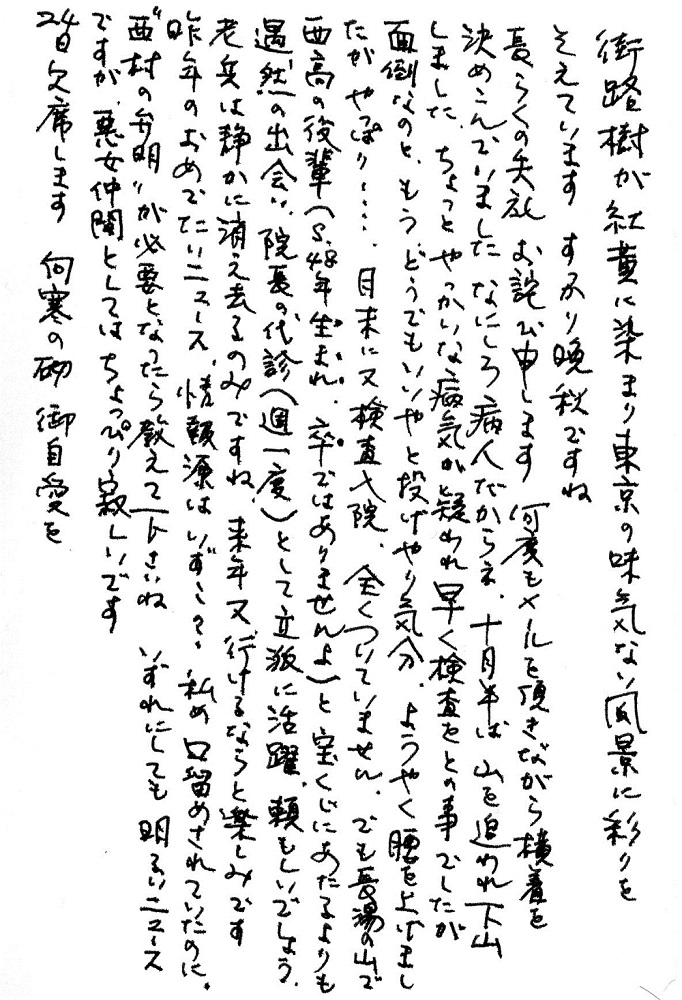 街路樹が紅黄に染まり東京の味気ない風景に彩りを
そえています すっかり晩秋ですね
長らくの失礼 お詫び申します 何度もメールを頂きながら横着を
決めこんでいました なにしろ病人だからネ、十月半ば 山を追われ下山
しました、ちょっとやっかいな病気が疑われ早く検査をとの事でしたが
面倒なのと、もう、どうでもいいやと投げやり気分、ようやく腰を上げまし
たが やっぱり‥‥、月末に又検査入院、全くついていません、でも長湯の山で
西高の後輩(S.48年生まれ、卒ではありませんよ)と宝くじにあたるよりも
遇然の出会い、院長の代診(週一度)として立派に活躍、頼もしいでしょう、
老兵は静かに消え去るのみですね 来年又行けるならと楽しみです
昨年のおめでたいニュース、情報源はいずこ?、私め口留めされていたのに、
"西村の弁明"が必要となったら教えて下さいね いずれにしても 明るいニュース
ですが、悪女仲間としてはちょっぴり寂しいです
24日欠席します 向寒の砌 御自愛を